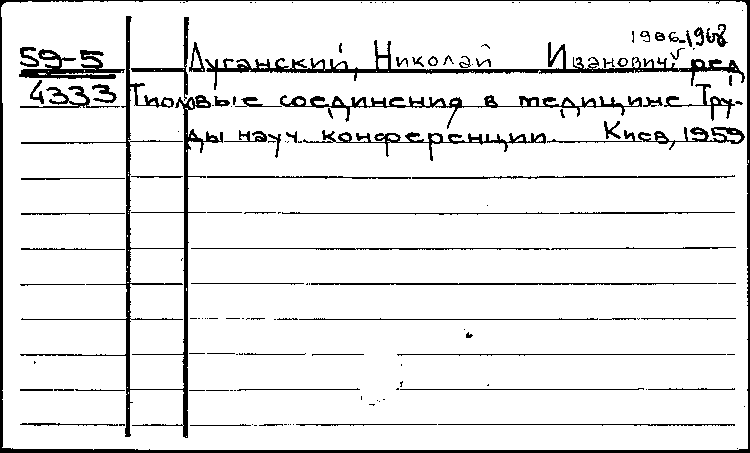 1906-1968
59-5 Луганский, Николай Иванович, ред
4333 Тиоловые соединения в медицине. Тру-
ды науч. конференции. Киев, 1959